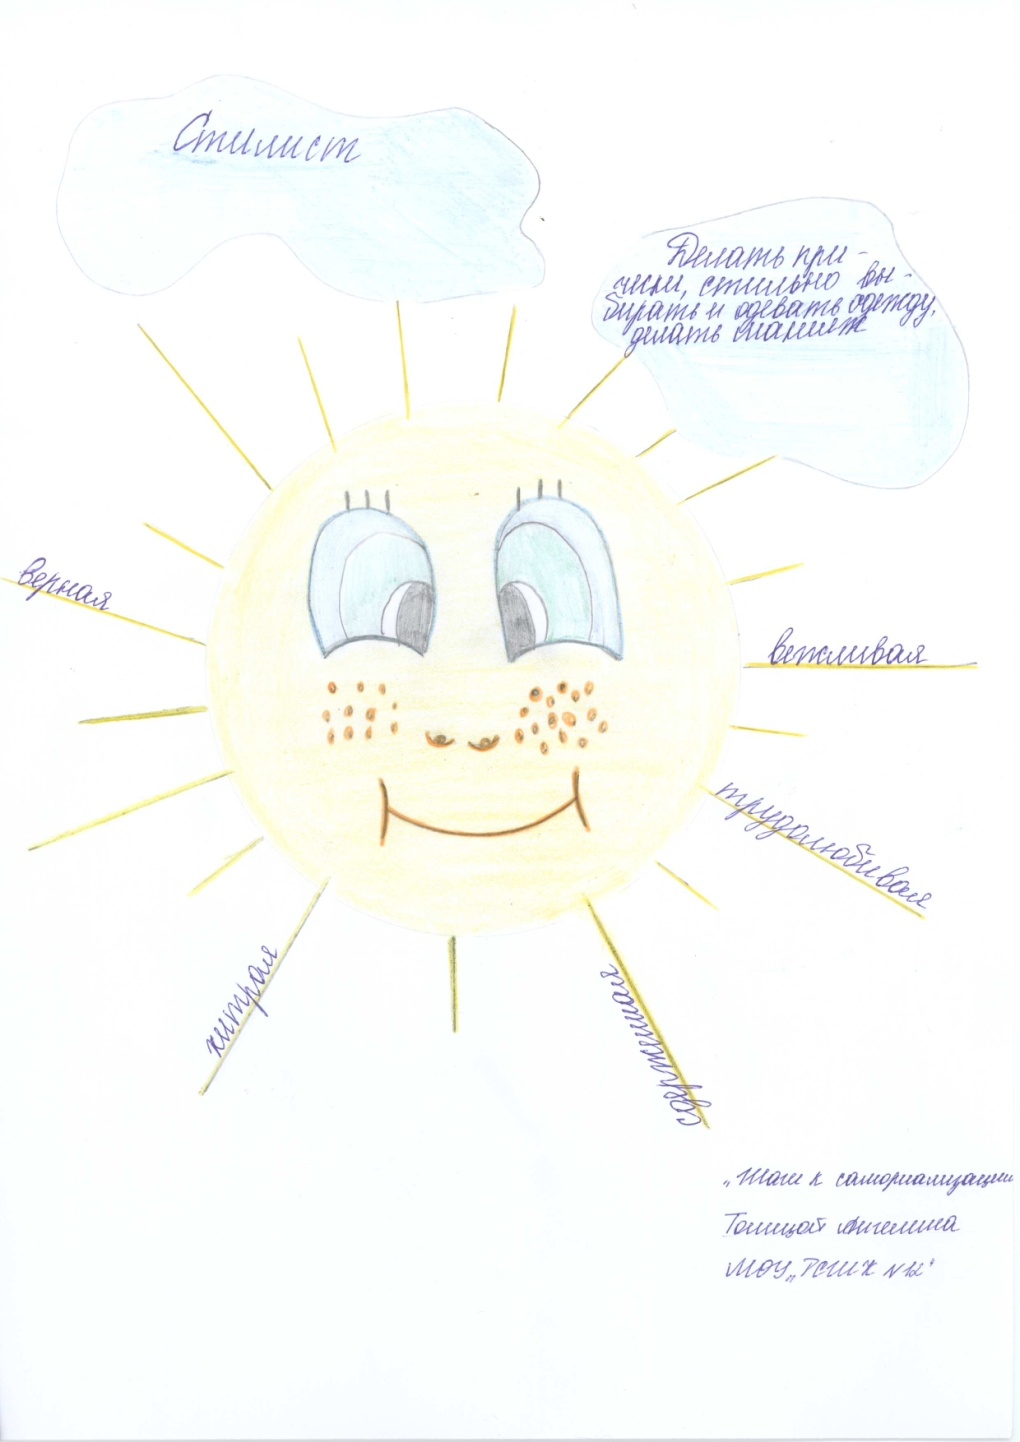 Стилист
Делать при-
чёски, стильно вы-
бирать и одевать одежду,
делать макияж
верная
вежливая
трудолюбивая
хитрая
„Шаги к самориализации
Ангелина
МОУ „РСШК №12"